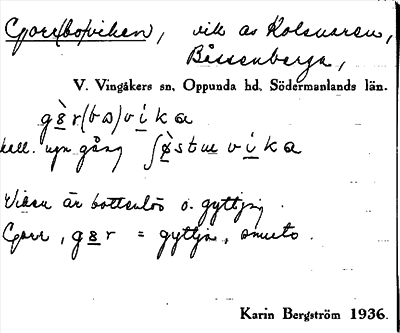 Gorr(bo)viken, vik av Kolsnaren,
Båssenberga,
V. Vingåkers sn, Oppunda hd, Södermanlands län.
vika
gång vika
Viken är bottenlös o. gyttjig.
Gorr, = gyttja, smuts.
Karin Bergström 1936.